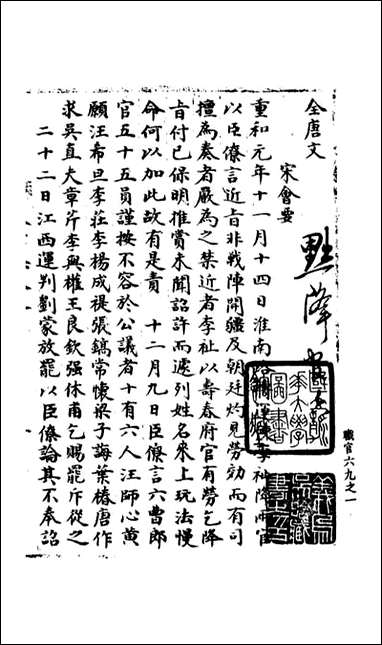 全唐文
宋會要
黜降官
重和元年十一月十四日淮南
李祉降兩官
以臣僚言近旨非戰陣開疆及朝廷灼見勞効而有司
擅為奏者嚴為之禁近者李祉以壽春府官有勞乞降
旨付已保明推賞未聞詔許而遽列姓名來上玩法慢
命何以加此故有是責　十二月九日臣僚言六曹郎
官五十五員謹按不容於公議者十有六人汪師心黄
願汪希旦李莊李楊成禔張鎬常懷梁子誨葉椿唐作
求吳直夫章芹李與權王良欽强休甫乞賜罷斥從之
二十二日江西運判劉蒙放罷以臣僚論其不奉詔
職官六九之一